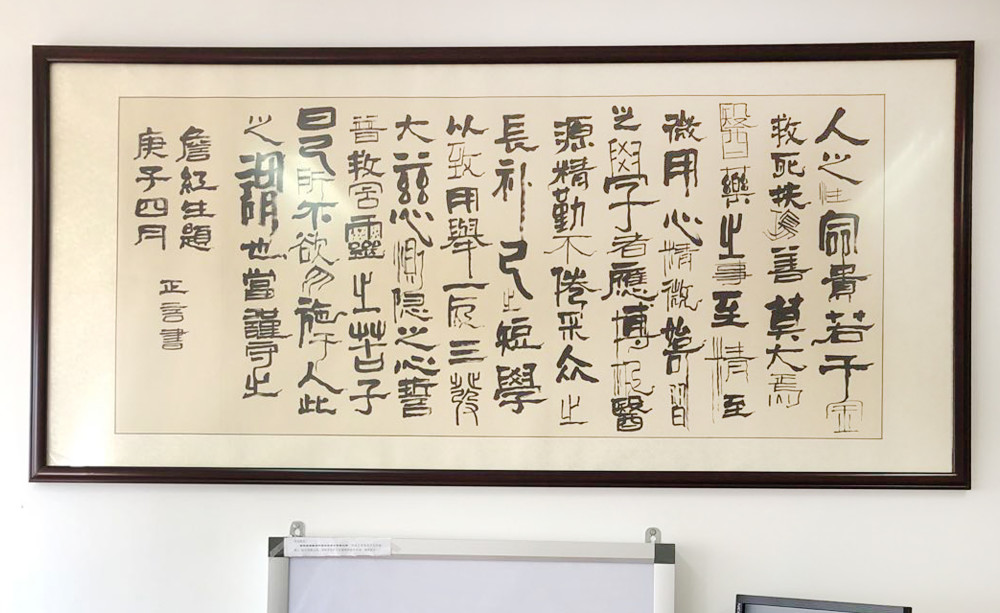 人之性命貴若千金
救死扶傷善莫大焉
醫藥之事至精至
微用心精微始習
之學子者應博极醫
源精勤不倦采众之
長补己之短學
以致用舉一反三發
大慈惻隐之心誓
普救含靈之苦子
曰己所不欲勿施于人此
之也當謹守之
詹紅生題
庚子四月
正言書